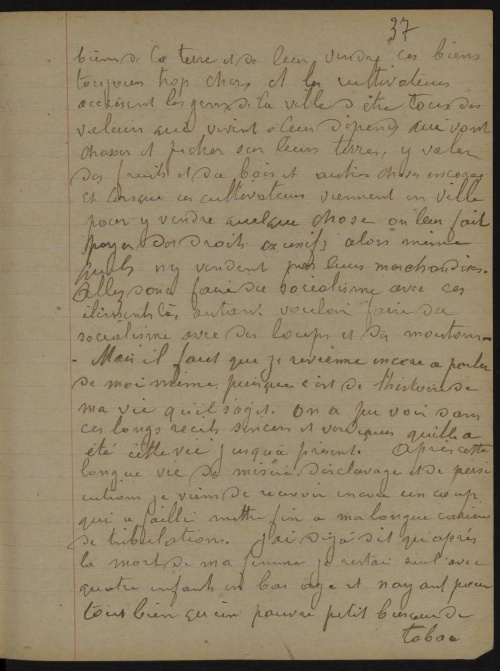 37
biens de la terre et de leur vendre ces biens
toujours trop cher, et les cultivateurs
accusent les gens de la ville d'être tous des
voleurs qui vivent à leurs dépends qui vont
chasser et pêcher sur leurs terres, y voler
des fruits et du bois et autres choses encores
Et lorsque ces cultivateurs viennent en ville
pour y vendre quelque chose on leur fait
payer des droits excessifs alors même
quils n'y vendent pas leurs marchandises.
Allez donc faire du socialisme avec ces
éléments là, autant vouloir faire du
socialisme avec des loups et des moutons-
- Mais il faut que je revienne encore a parler
de moi même, puisque c'est de l'histoire de
ma vie qu'il sagit. On a pu voir dans
ces longs récits sincers et veridiques quelle a
été cette vie jusqu'à présent. Après cette
longue vie de misère d'esclavage et de persé
cutions je viens de recevoir encore un coup
qui a failli mettre fin a ma longue
de tribulations. J'ai déjà dit qu'après
la mort de ma femme je restai seul avec
quatre enfants en bas âge et n'ayant pour
tout bien qu'un pauvre petit bureau de
tabac